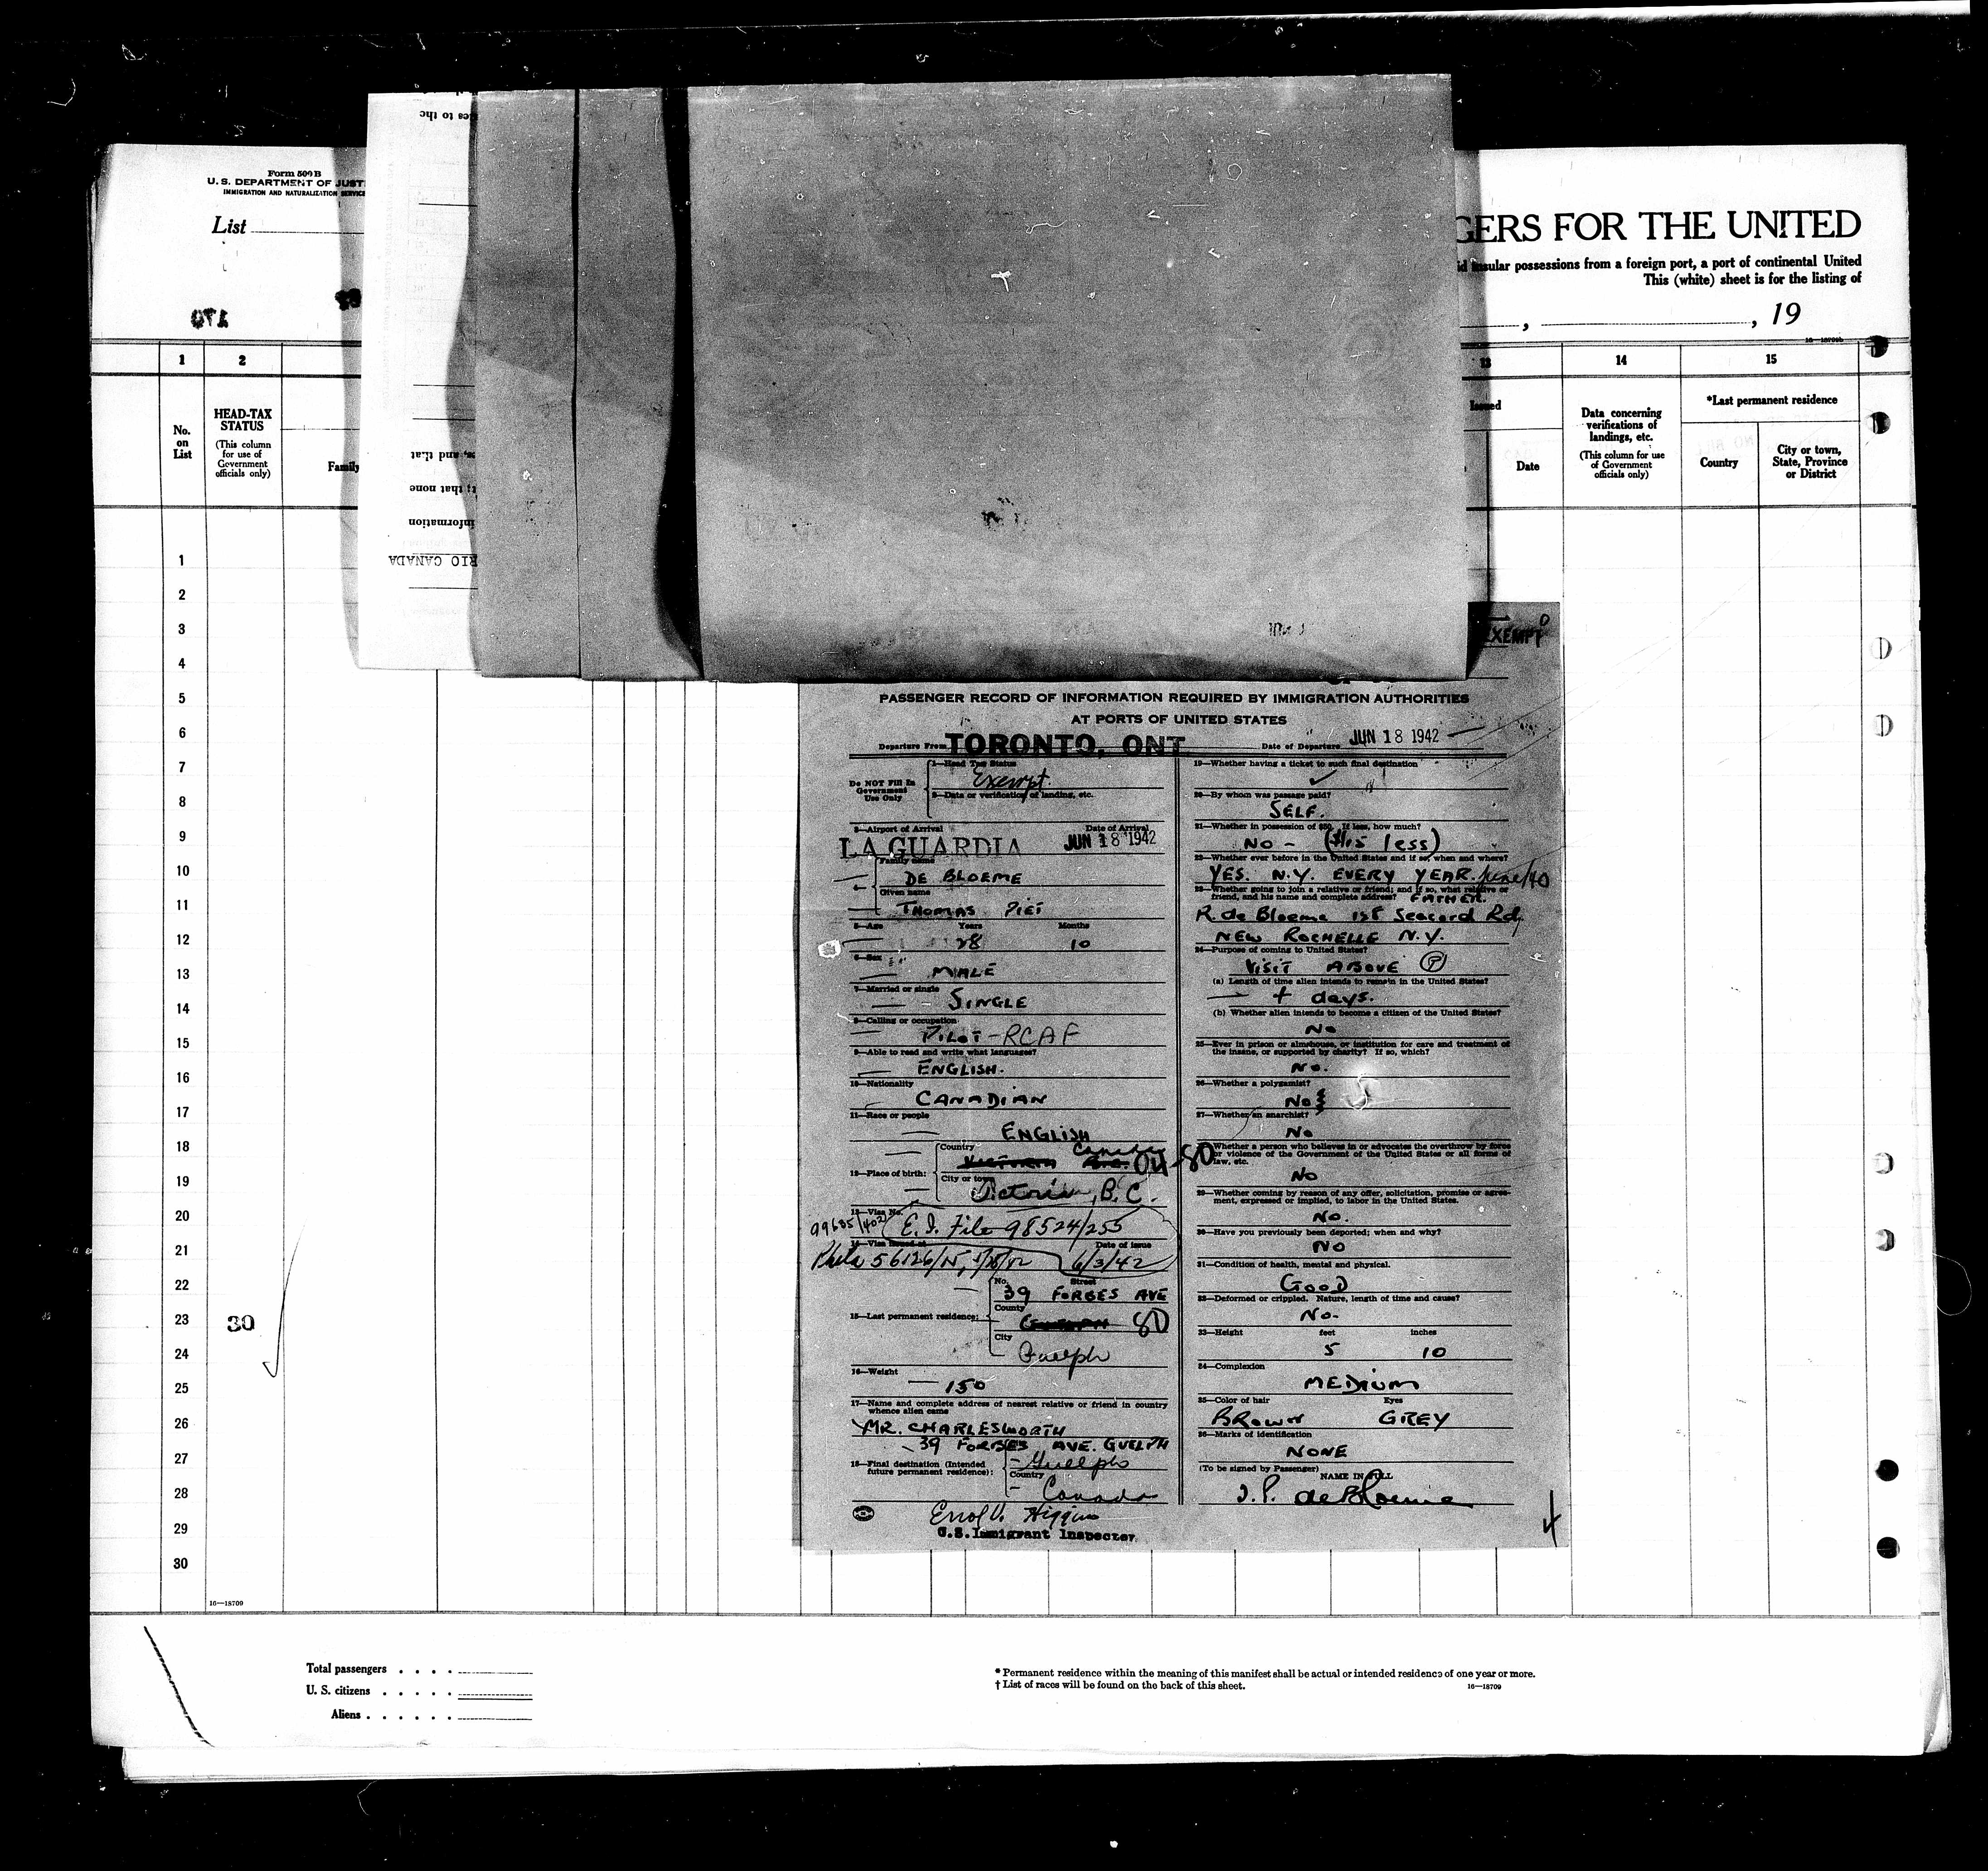 Form 500 B
U. S. DEPARTMENT OF JUST
IMMIGRATION AND NATURALIZATION SERVICE
List
170
ces to the
s, and that
t; that none
information
RIO CANADA
GERS FOR THE UNITED
id insular possessions from a foreign port, a port of continental United
This (white) sheet is for the listing of
, , 19
1 2 13 14 15
No. on List
HEAD-TAX STATUS
(This column for use of Government officials only)
Family
Issued
Date
Data concerning verifications of landings, etc.
(This column for use of Government officials only)
*Last permanent residence
Country
City or town, State, Province or District
1
2
3
4
5
6
7
8
9
10
11
12
13
14
15
16
17
18
19
20
21
22
23 30
24
25
26
27
28
29
30
16—18709
EXEMPT
PASSENGER RECORD OF INFORMATION REQUIRED BY IMMIGRATION AUTHORITIES
AT PORTS OF UNITED STATES
Departure From TORONTO, ONT. Date of Departure JUN 18 1942
Do NOT Fill In Government Use Only
1—Head Tax Status
Exempt
2—Data or verification of landing, etc.
3—Airport of Arrival Date of Arrival
LA GUARDIA JUN 18 1942
4— Family name
DE BLOEME
Given name
THOMAS PIET
5—Age Years Months
28 10
6—Sex
MALE
7—Married or single
SINGLE
8—Calling or occupation
PILOT - RCAF
9—Able to read and write what languages?
ENGLISH.
10—Nationality
CANADIAN
11—Race or people
ENGLISH
12—Place of birth: Country
Canada
04-80
City or town
Victoria, B.C.
13—Visa No.
99685/402 E. I. File 98524/255
14—Visa issued at Date of issue
56126/ 6/3/42
15—Last permanent residence: No. Street
39 FORBES AVE
County
80
City
Guelph
16—Weight
150
17—Name and complete address of nearest relative or friend in country whence alien came
MR. CHARLESWORTH
39 FORBES AVE. GUELPH
18—Final destination (Intended future permanent residence):
Guelph
Country
Canada
Errol V. Higgins
U.S. Immigrant Inspector.
19—Whether having a ticket to such final destination
✓
20—By whom was passage paid?
SELF.
21—Whether in possession of $50. If less, how much?
NO - ($15 less)
22—Whether ever before in the United States and if so, when and where?
YES. N.Y. EVERY YEAR. June/40
23—Whether going to join a relative or friend; and if so, what relative or friend, and his name and complete address? FATHER.
R. de Bloeme 158 Seacord Rd,
NEW ROCHELLE N.Y.
24—Purpose of coming to United States?
VISIT ABOVE (P)
(a) Length of time alien intends to remain in the United States?
days.
(b) Whether alien intends to become a citizen of the United States?
No
25—Ever in prison or almshouse, or institution for care and treatment of the insane, or supported by charity? If so, which?
No.
26—Whether a polygamist?
No
27—Whether an anarchist?
No
Whether a person who believes in or advocates the overthrow by force or violence of the Government of the United States or all forms of law, etc.
No
29—Whether coming by reason of any offer, solicitation, promise or agreement, expressed or implied, to labor in the United States.
No.
30—Have you previously been deported; when and why?
NO
31—Condition of health, mental and physical.
GOOD
32—Deformed or crippled. Nature, length of time and cause?
NO-
33—Height feet inches
5 10
34—Complexion
MEDIUM
35—Color of hair Eyes
BROWN GREY
36—Marks of identification
NONE
(To be signed by Passenger) NAME IN FULL
T. P. de Bloeme
4
Total passengers . . . .
U. S. citizens . . . . .
Aliens . . . . . .
* Permanent residence within the meaning of this manifest shall be actual or intended residence of one year or more.
† List of races will be found on the back of this sheet.
16—18709